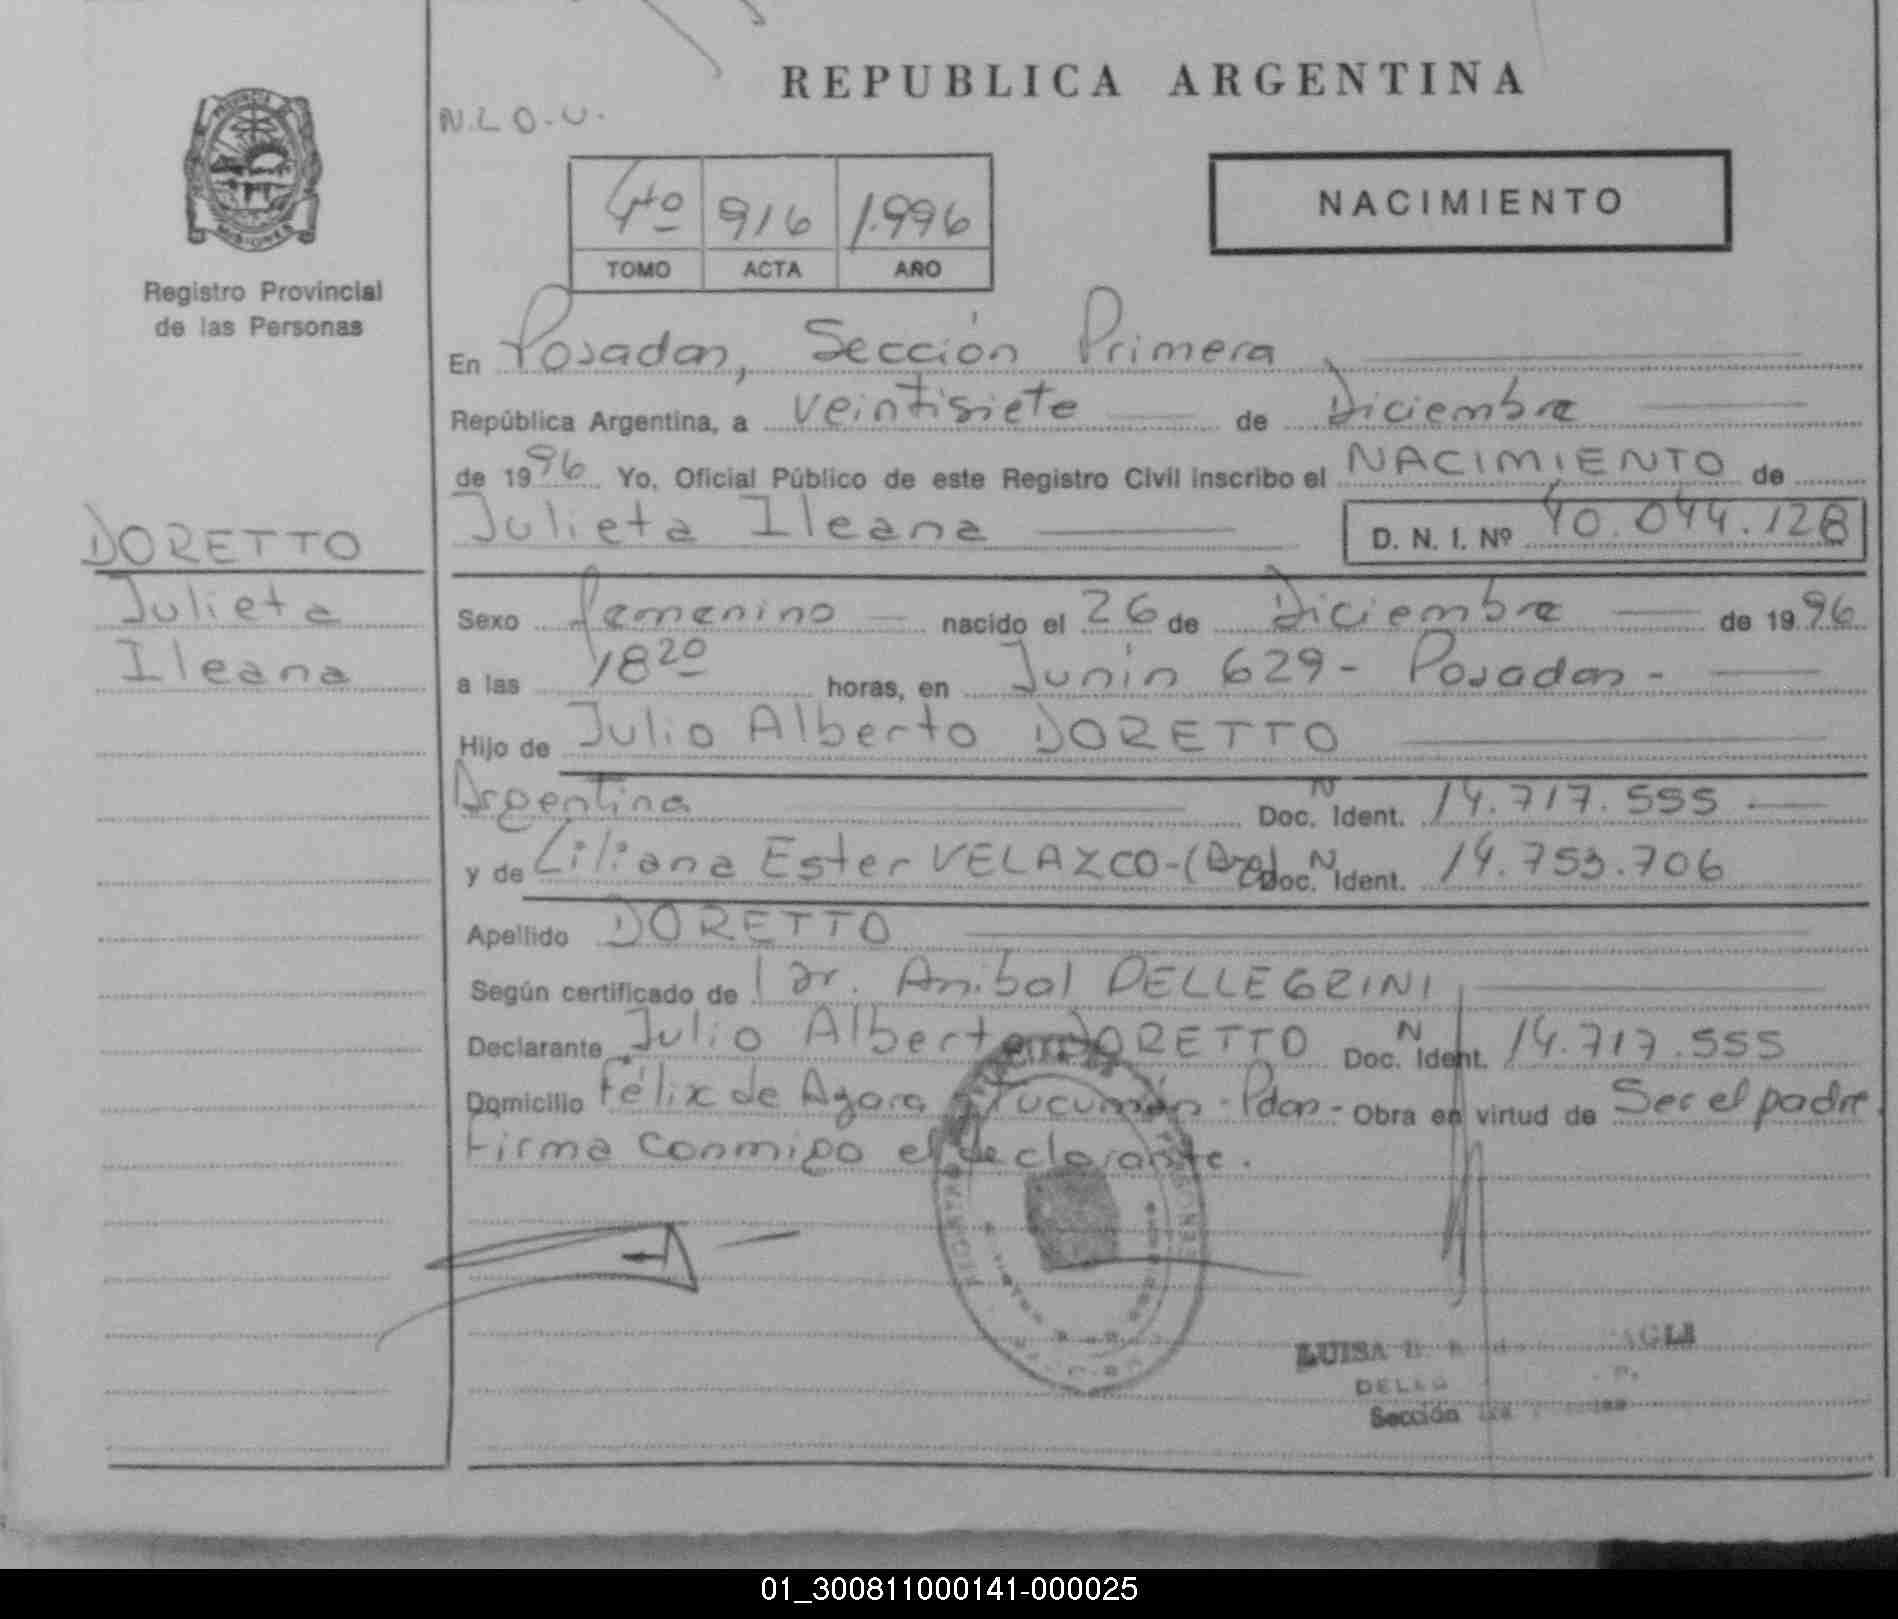 REPUBLICA ARGENTINA
N.L.O.U.
NACIMIENTO
4to 916 1.996
TOMO ACTA AÑO
PROVINCIA DE
MISIONES
Registro Provincial
de las Personas
En Posadas, Sección Primera
República Argentina, a veintisiete de Diciembre
de 1996 Yo, Oficial Público de este Registro Civil inscribo el NACIMIENTO de
Julieta Ileana D. N. I. Nº 40.044.128
DORETTO
Julieta
Ileana
Sexo femenino nacido el 26 de Diciembre de 1996
a las 18 20 horas, en Junin 629 - Posadas -
Hijo de Julio Alberto DORETTO
Argentina Doc. N Ident. 14.717.555
y de Liliana Ester VELAZCO-(Arg) Doc. N Ident. 14.753.706
Apellido DORETTO
Según certificado de Dr. Anibal PELLEGRINI
Declarante Julio Alberto DORETTO Doc. N Ident. 14.717.555
Domicilio Félix de Azara y Tucumán - Pdas - Obra en virtud de Ser el padre.
Firma conmigo el declarante.
LUISA
Sección
01_300811000141-000025